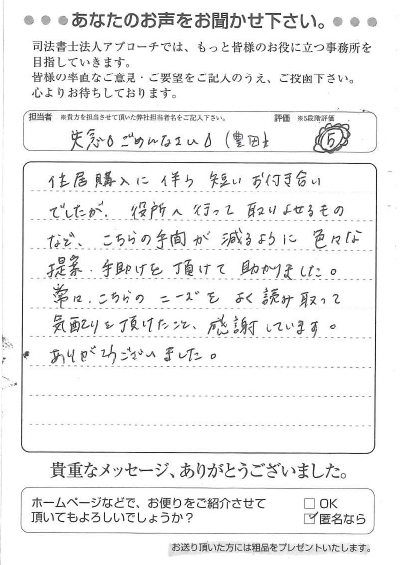 あなたのお声をお聞かせ下さい。
司法書士法人アプローチでは、もっと皆様のお役に立つ事務所を
目指していきます。
皆様の率直なご意見・ご要望をご記入のうえ、ご投函下さい。
心よりお待ちしております。
担当者 ※貴方を担当させて頂いた弊社担当者名をご記入下さい。 評価 ※5段階評価
失念。ごめんなさい。(豊田 5
住居購入に伴う 短い お付き合い
でしたが、役所へ行って 取りよせるもの
など、こちらの手間が 減るように 色々な
提案・手助けを 頂けて 助かりました。
常々、こちらの ニーズを よく読み取って
気配りを頂けたこと、感謝しています。
ありがとうございました。
貴重なメッセージ、ありがとうございました。
ホームページなどで、お便りをご紹介させて
頂いてもよろしいでしょうか?
□ OK
☑ 匿名なら
お送り頂いた方には粗品をプレゼントいたします。